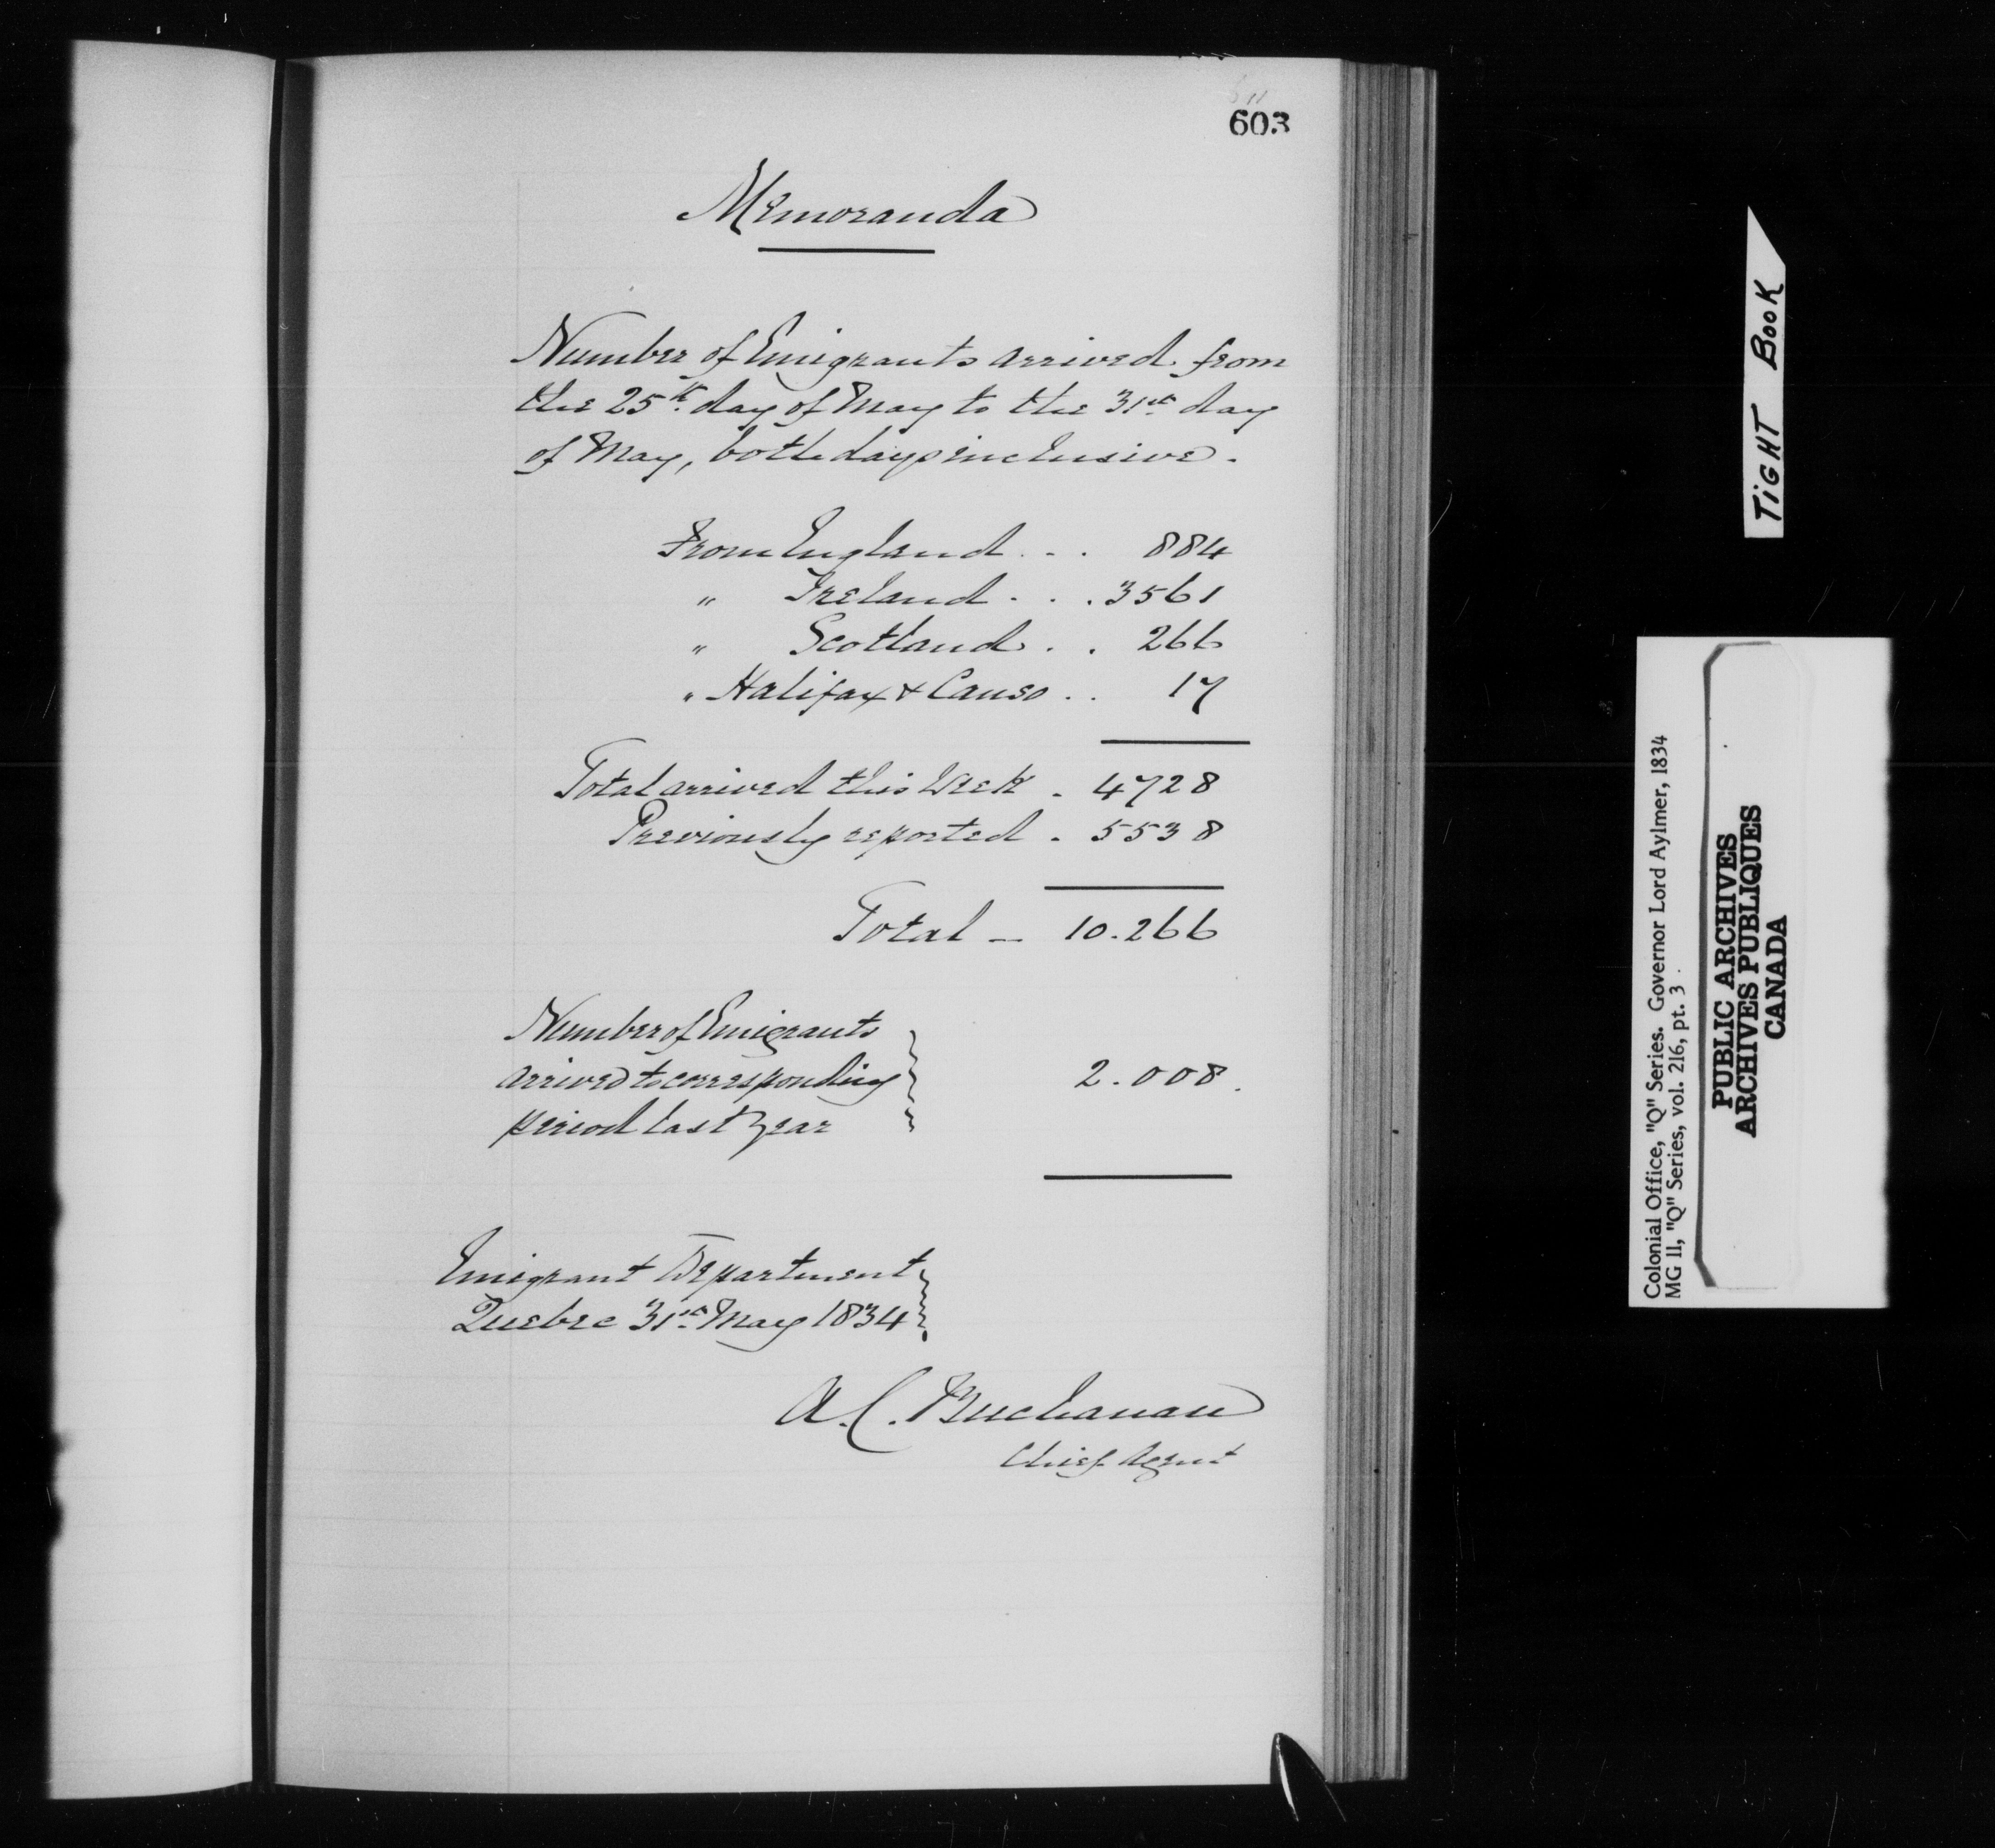 603
Memoranda
Number of Emigrants arrived from
the 25th day of May to the 31st day
of May, both days inclusive.
From England . . . 884
" Ireland . . . 3561
" Scotland . . 266
" Halifax & Canso . . 17
Total arrived this Week . 4728
Previously reported . 5538
Total — 10.266
Number of Emigrants
arrived to corresponding
period last year
2.008.
Emigrant Department
Quebec 31st May 1834
A. C. Buchanan
Chief Agent
TiGHT BOOK
Colonial Office, "Q" Series. Governor Lord Aylmer, 1834
MG 11, "Q" Series, vol. 216, pt. 3
PUBLIC ARCHIVES
ARCHIVES PUBLIQUES
CANADA